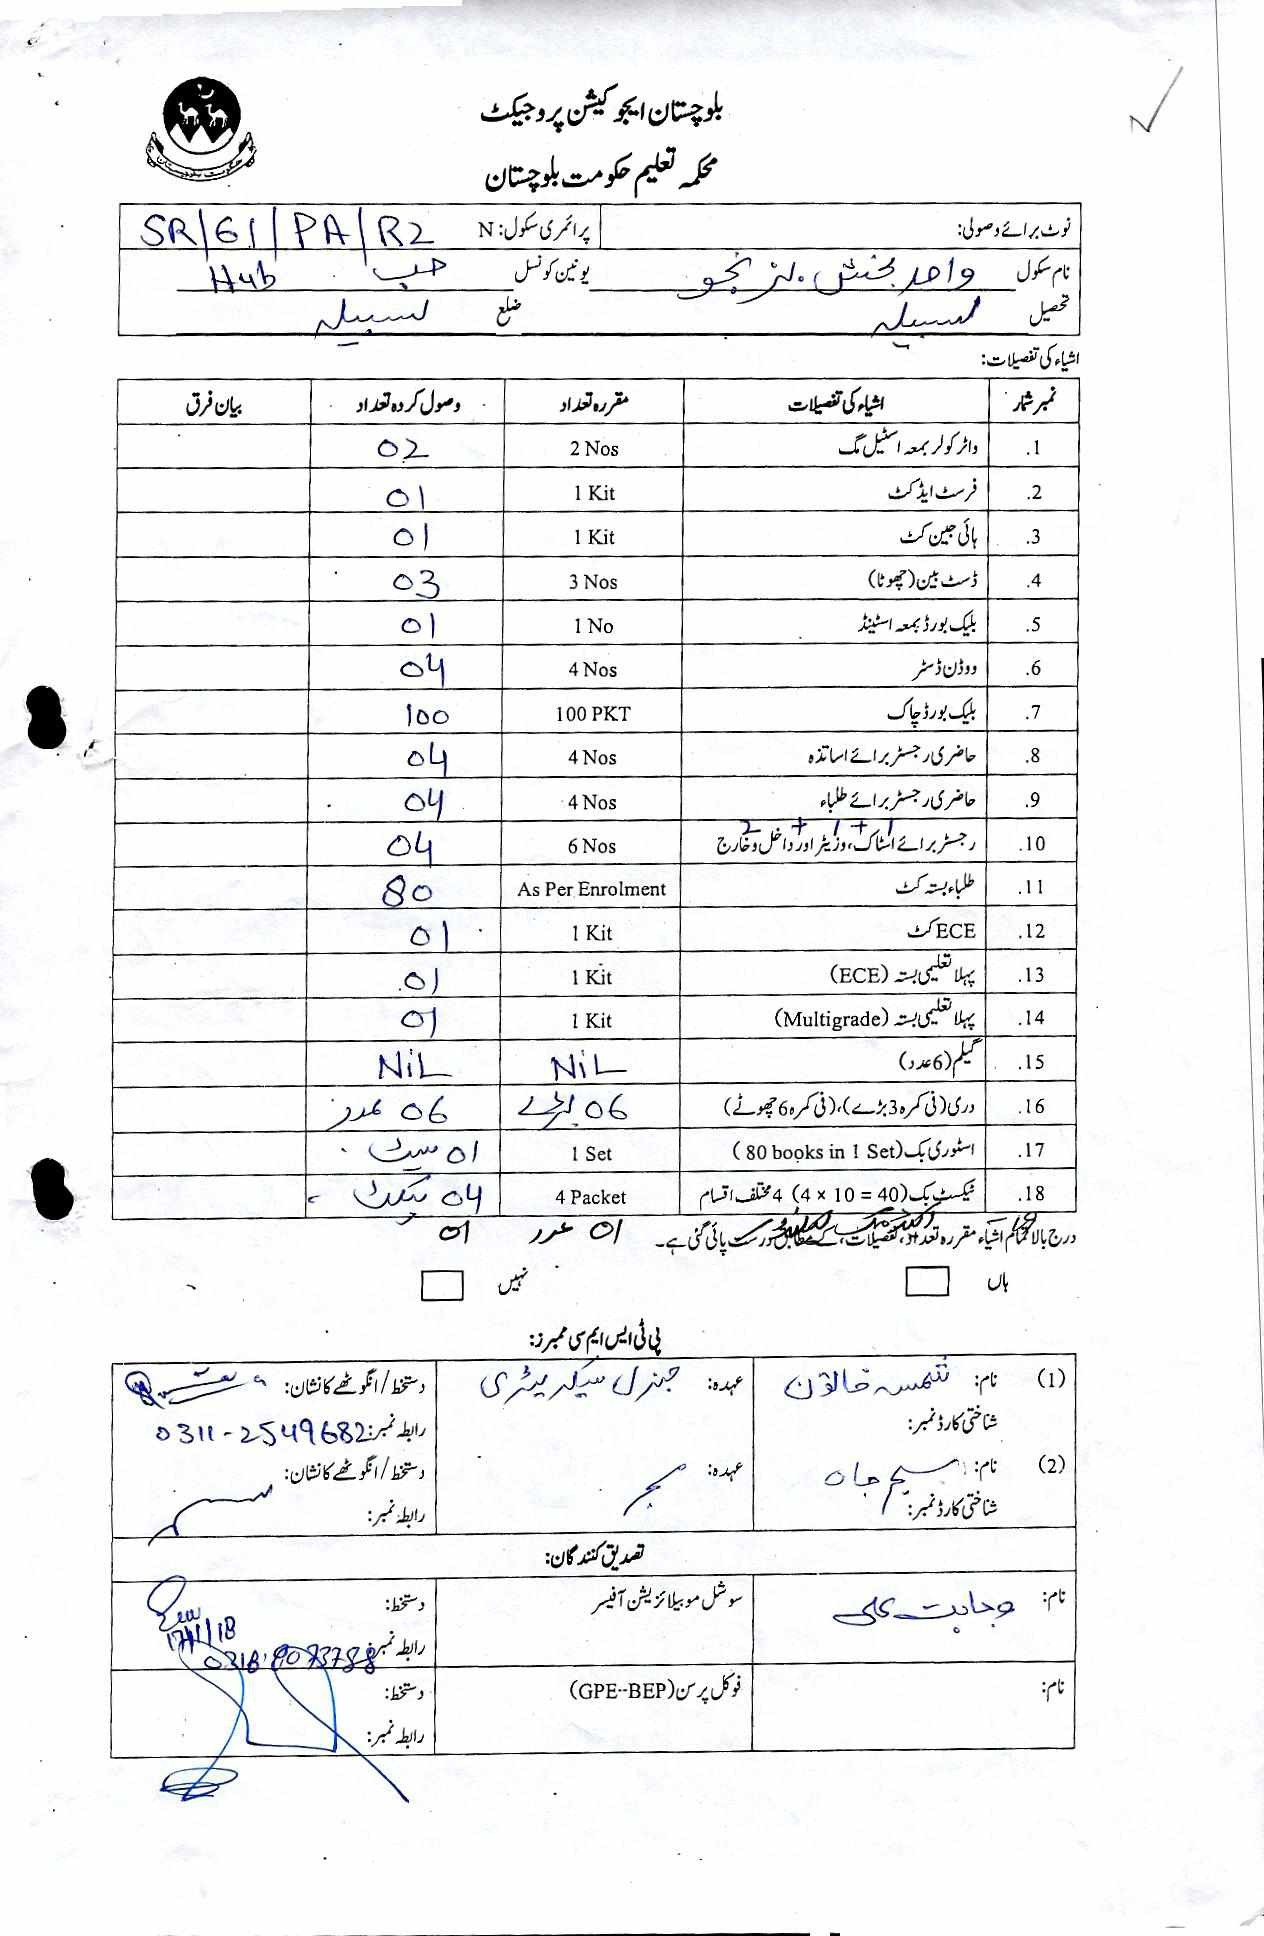 حکومت بلوچستان
بلوچستان ایجوکیشن پروجیکٹ
محکمہ تعلیم حکومت بلوچستان
نوٹ برائے وصولی: پرائمری سکول: N SR/61/PA/R2
نام سکول واحد بخش بزنجو یونین کونسل حب Hub
تحصیل لسبیلہ ضلع لسبیلہ
اشیاء کی تفصیلات:
نمبر شمار اشیاء کی تفصیلات مقررہ تعداد وصول کردہ تعداد بیان فرق
1. واٹر کولر بمعہ اسٹیل مگ 2 Nos 02
2. فرسٹ ایڈ کٹ 1 Kit 01
3. ہائی جین کٹ 1 Kit 01
4. ڈسٹ بین (چھوٹا) 3 Nos 03
5. بلیک بورڈ بمعہ اسٹینڈ 1 No 01
6. ووڈن ڈسٹر 4 Nos 04
7. بلیک بورڈ چاک 100 PKT 100
8. حاضری رجسٹر برائے اساتذہ 4 Nos 04
9. حاضری رجسٹر برائے طلباء 4 Nos 04
1 + 1 + 2
10. رجسٹر برائے اسٹاک، وزیٹر اور داخل و خارج 6 Nos 04
11. طلباء بستہ کٹ As Per Enrolment 80
12. ECE کٹ 1 Kit 01
13. پہلا تعلیمی بستہ (ECE) 1 Kit 01
14. پہلا تعلیمی بستہ (Multigrade) 1 Kit 01
15. گیلم (6 عدد) NiL NiL
16. دری (فی کمرہ 3 بڑے)، (فی کمرہ 6 چھوٹے) 06 بڑے 06 عدد
17. اسٹوری بک (80 books in 1 Set) 1 Set 01 سیٹ
18. ٹیکسٹ بک (4 × 10 = 40) 4 مختلف اقسام 4 Packet 04 پیکٹ
19 01 عدد 01
درج بالا تمام اشیاء مقررہ تعداد، تفصیلات، کے مطابق درست پائی گئی ہے۔
ہاں نہیں
پی ٹی ایس ایم سی ممبرز:
(1) نام: شمسہ خاتون عہدہ: جنرل سیکریٹری دستخط / انگوٹھے کا نشان:
شناختی کارڈ نمبر: رابطہ نمبر: 0311-2549682
(2) نام: جاہ عہدہ: ممبر دستخط / انگوٹھے کا نشان:
شناختی کارڈ نمبر: رابطہ نمبر:
تصدیق کنندگان:
نام: وجاہت علی سوشل موبیلائزیشن آفیسر دستخط: 17/1/18
رابطہ نمبر: 0318-8073788
نام: فوکل پرسن (GPE--BEP) دستخط:
رابطہ نمبر: